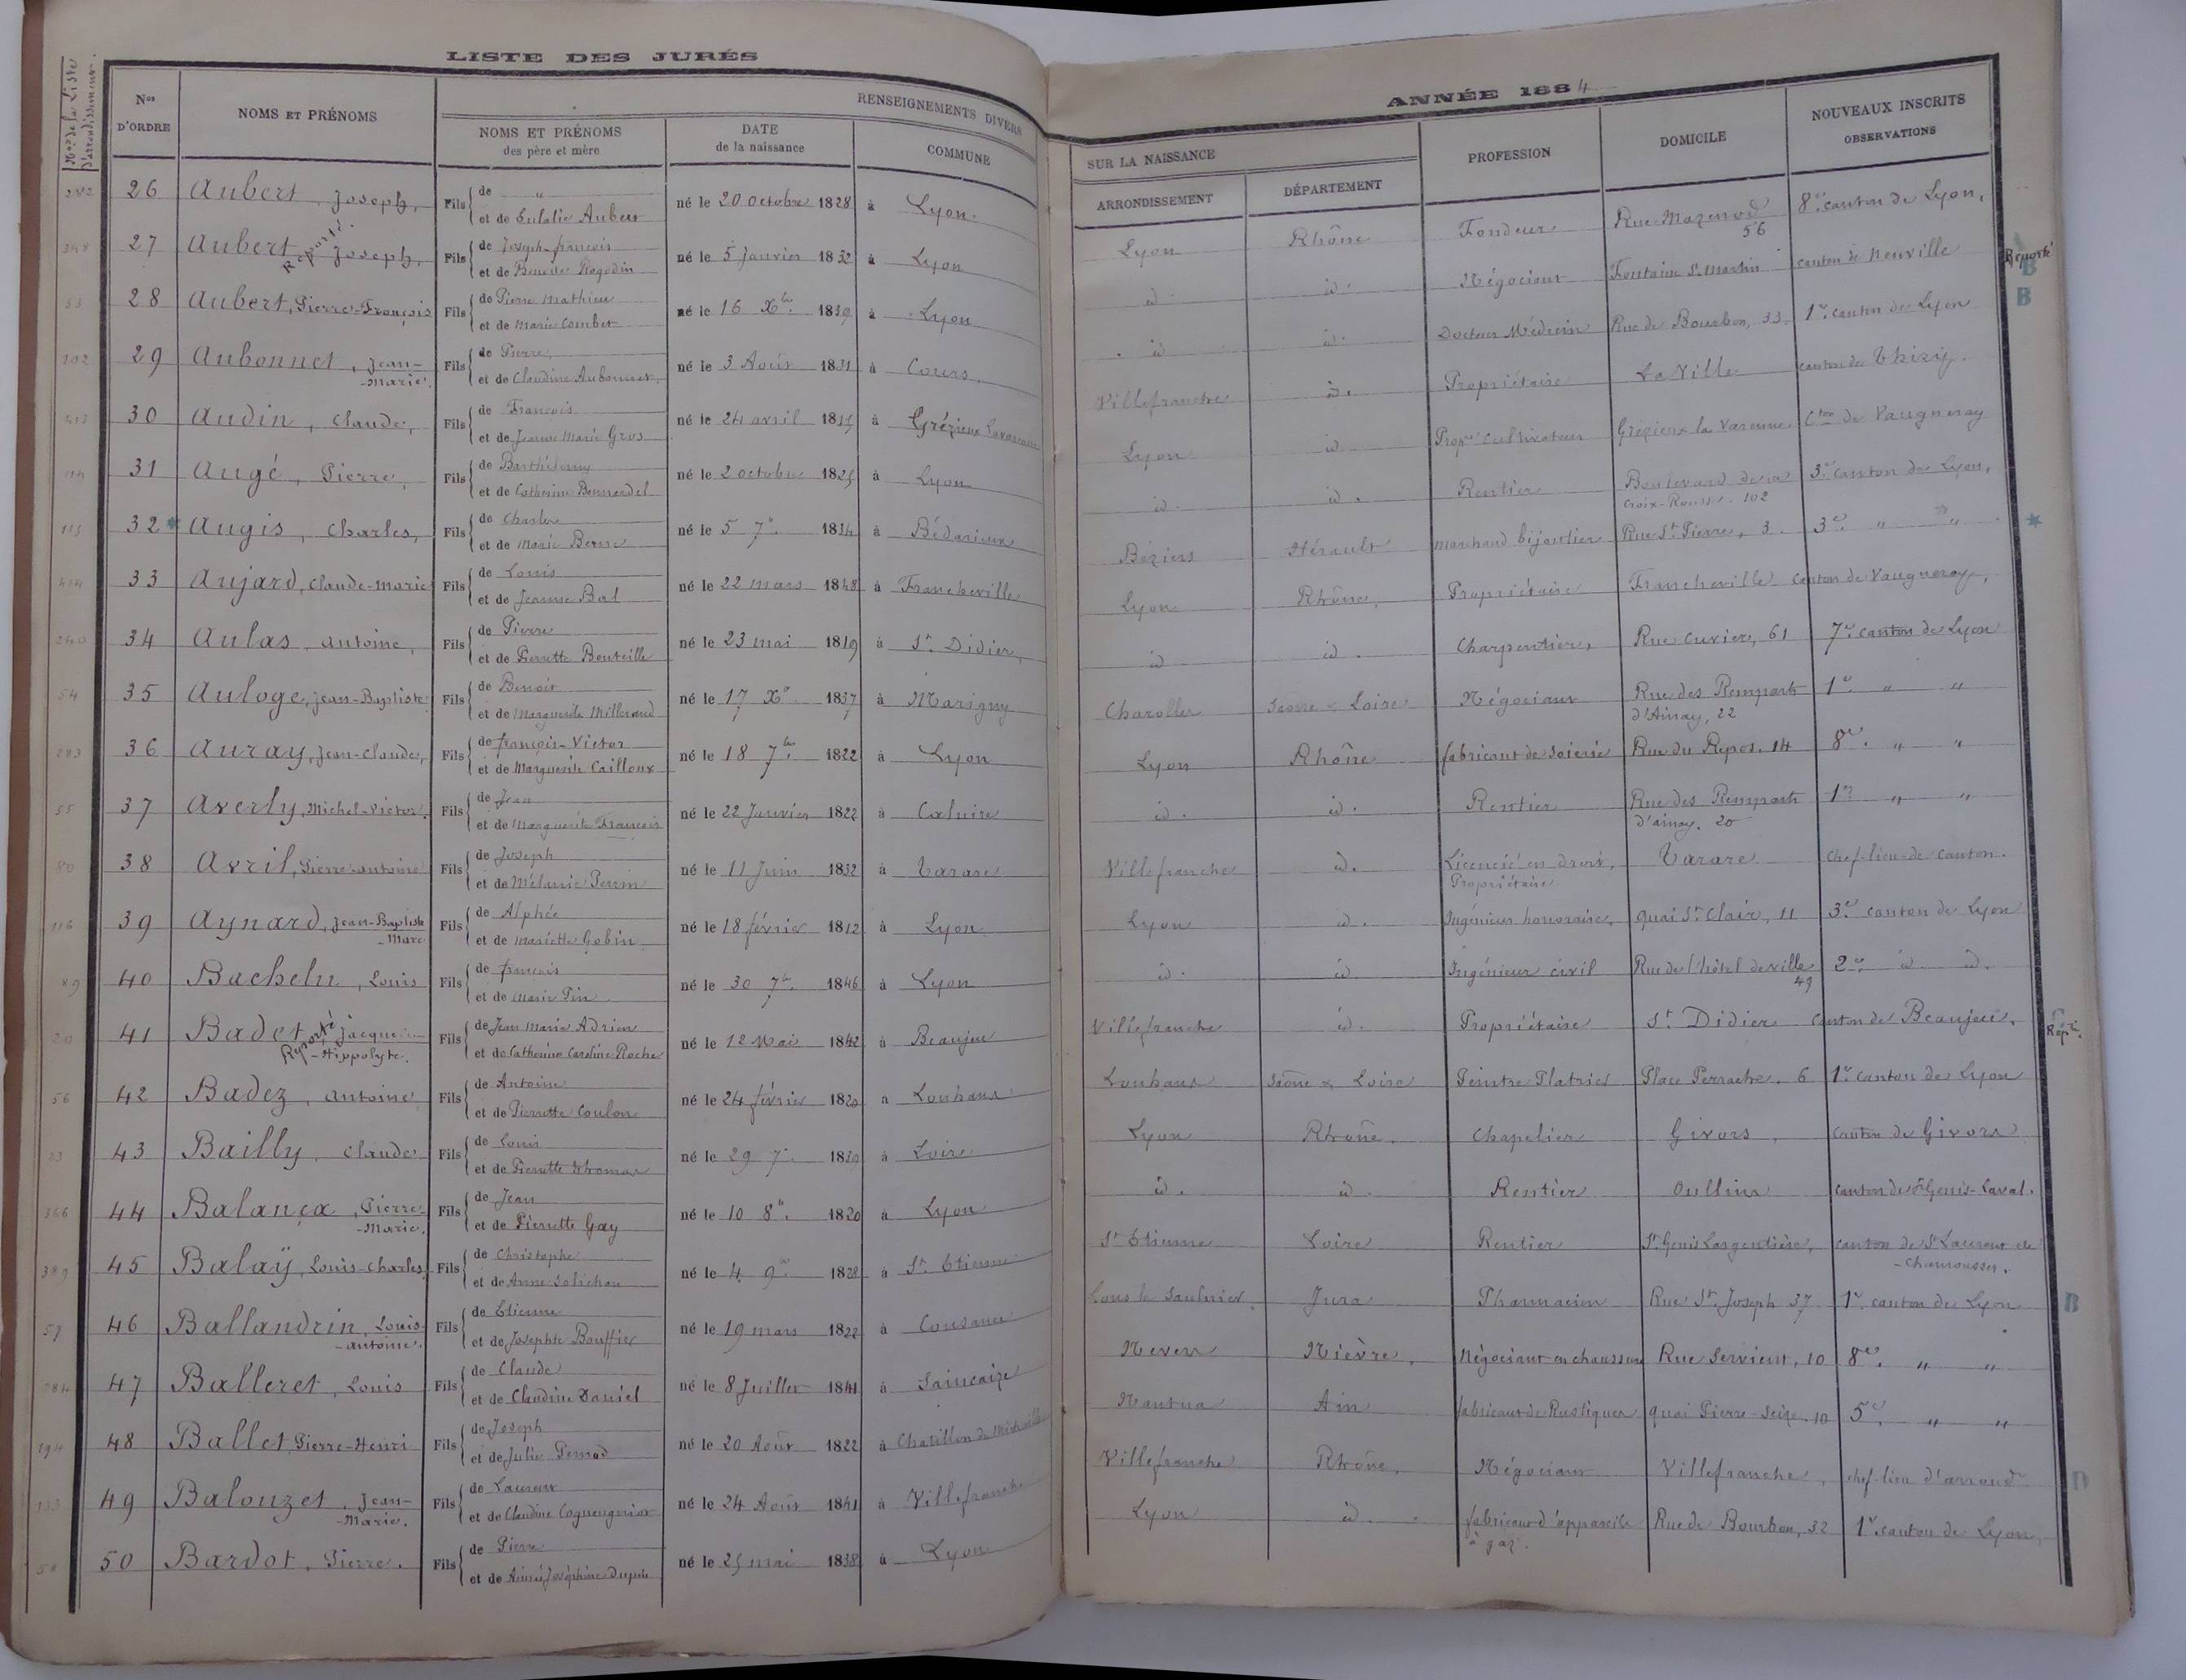 LISTE DES JURÉS
ANNÉE 1884
Nos de la Liste d'arrondissement.
Nos D'ORDRE
NOMS ET PRÉNOMS
RENSEIGNEMENTS DIVERS
SUR LA NAISSANCE
NOMS ET PRÉNOMS des père et mère
DATE de la naissance
COMMUNE
ARRONDISSEMENT
DÉPARTEMENT
PROFESSION
DOMICILE
NOUVEAUX INSCRITS
OBSERVATIONS
282 26 Aubert, Joseph, Fils de " et de Eulalie Aubert né le 20 octobre 1828 à Lyon. Lyon Rhône Fondeur Rue Mazenod 56 8e canton de Lyon,
348 27 Aubert Joseph, Reporté. Fils de Joseph-françois et de Benoite Ragodin né le 5 janvier 1832 à Lyon id. id. Négociant Fontaine St. Martin canton de Neuville Reporté B
53 28 Aubert, Pierre-François Fils de Pierre Mathieu et de Marie Combet né le 16 Xbre 1839 à Lyon id id. Docteur Médecin Rue de Bourbon, 33. 1er canton de Lyon B
102 29 Aubonnet, Jean-Marie. Fils de Pierre, et de Claudine Aubonnet, né le 3 Août 1831 à Cours. Villefranche id. Propriétaire La Ville canton de Thizy.
413 30 Audin, Claude, Fils de François et de Jeanne Marie Gros né le 24 avril 1815 à Grézieux Lavarenne Lyon id Propre Cultivateur Grézieux la Varenne. Cton de Vaugneray
114 31 Augé, Pierre, Fils de Barthélemy et de Catherine né le 2 octobre 1825 à Lyon id. id. Rentier Boulevard de la Croix-Rousse. 102 3e canton de Lyon,
115 32 * Augis, Charles, Fils de Charles et de Marie né le 5 7e. 1834 à Bédarieux Béziers Hérault marchand bijoutier Rue St. Pierre, 3. 3e " " *
414 33 Aujard, Claude-Marie Fils de Louis et de Jeanne Bal né le 22 mars 1848 à Francheville Lyon Rhône, Propriétaire Francheville canton de Vaugneray,
240 34 Aulas, Antoine, Fils de Pierre et de Pierrette Bouteille né le 23 mai 1819 à St. Didier, id id. Charpentier, Rue Cuvier, 61 7e canton de Lyon
54 35 Auloge, Jean-Baptiste Fils de Benoit et de Marguerite Millerand né le 17 Xe. 1837 à Marigny Charolles Saône & Loire Négociant Rue des Remparts d'Ainay, 22 1er " "
283 36 Auray, Jean-Claude, Fils de françois-Victor et de Marguerite Cailloux né le 18 7bre. 1822 à Lyon Lyon Rhône fabricant de Soierie Rue du Repos. 14 8e. " "
55 37 Averly, Michel-Victor. Fils de Jean et de Marguerite François né le 22 Janvier 1822 à Caluire id. id. Rentier Rue des Remparts d'ainay. 20 1er " "
80 38 Avril, Pierre-antoine Fils de Joseph et de Mélanie Perrin né le 11 Juin 1832 à Tarare Villefranche id. Licencié en droit, Propriétaire Tarare Chef-lieu-de canton.
116 39 Aynard, Jean-Baptiste-Marc Fils de Alphée et de Mariette Gobin né le 18 février 1812 à Lyon Lyon id. Ingénieur honoraire, quai St. Clair, 11 3e canton de Lyon
89 40 Bachelu, Louis Fils de françois et de Marie Pin né le 30 7bre. 1846 à Lyon id. id Ingénieur civil Rue de l'hôtel de ville 49 2e id id.
20 41 Badet, Jacques-Hippolyte. Reporté Fils de Jean Marie Adrien et de Catherine Caroline Roche né le 12 Mai 1842 à Beaujeu Villefranche id. Propriétaire St. Didier canton de Beaujeu. Repté.
56 42 Badez, Antoine Fils de Antoine et de Pierrette Coulon né le 24 février 1820 a Louhans Louhans Saône & Loire Peintre Platrier Place Perrache. 6 1er canton de Lyon
23 43 Bailly, Claude Fils de Louis et de Pierrette Thomas né le 29 7e. 1819 à Loire Lyon Rhône. Chapelier Givors, canton de Givors
366 44 Balança, Pierre-Marie. Fils de Jean et de Pierrette Gay né le 10 8e. 1820 à Lyon id. id. Rentier Oullins canton de St Genis-Laval.
389 45 Balaÿ, Louis-Charles, Fils de Christophe et de Anne né le 4 9e 1828 à St. Etienne St Etienne Loire Rentier St. Genis Largentière, canton de St Laurent de Chamousset.
57 46 Ballandrin, Louis-antoine. Fils de Etienne et de Josephte Bouffier né le 19 mars 1822 à Cousance Lons le Saulnier Jura Pharmacien Rue St. Joseph 37 1er canton de Lyon B
284 47 Balleret, Louis Fils de Claude et de Claudine Daniel né le 8 Juillet 1841 à Saincaize Nevers Nièvre. Négociant en chaussures Rue Servient, 10 8e. " "
194 48 Ballet, Pierre-Henri Fils de Joseph et de Julie Pernod né le 20 Août 1822 à Chatillon de Michaille Nantua Ain fabricant de Rustiques quai Pierre-Scize. 10 5e. " "
133 49 Balouzet, Jean-Marie. Fils de Laurent et de Claudine né le 24 Août 1841 à Villefranche Villefranche Rhône. Négociant Villefranche, chef-lieu d'arrondt D
58 50 Bardot, Pierre. Fils de Pierre et de Aimée Joséphine Dupuis né le 25 mai 1838 à Lyon Lyon id. fabricant d'appareils à gaz. Rue de Bourbon, 32 1er canton de Lyon,